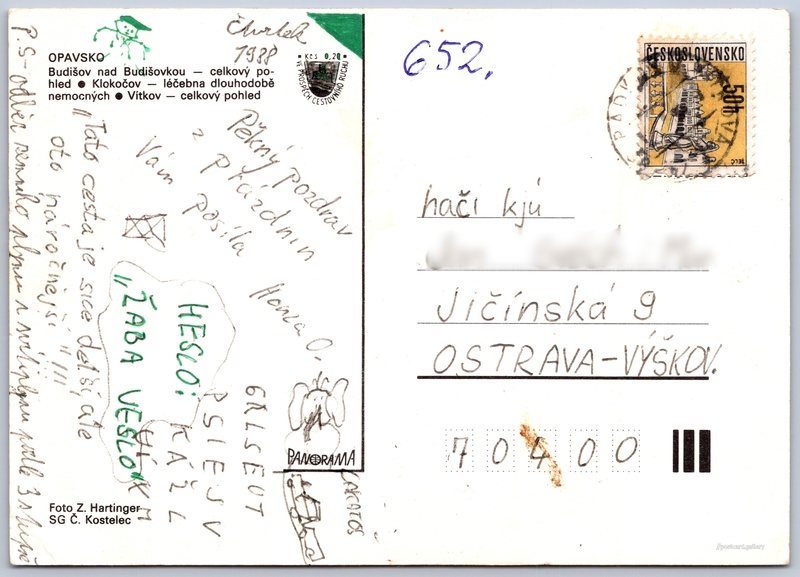 čtvrtek
1988
OPAVSKO
Budišov nad Budišovkou — celkový po-
hled ● Klokočov — léčebna dlouhodobě
nemocných ● Vítkov — celkový pohled
Kčs 0,20
VE PROSPĚCH CESTOVNÍHO RUCHU
Pěkný pozdrav
z prázdnin
Vám posílá
Honza O.
„Tato cesta je sice delší, ale
oto náročnější "!!!
HESLO:
„ŽABA VESLO"
P.S-
GRLSEUT
PSIEJSV
KÁŽL
PANORAMA
KARATOS
Foto Z. Hartinger
SG Č. Kostelec
652.
ČESKOSLOVENSKO
50h
TELČ
hači kjú
Jičínská 9
OSTRAVA-VÝŠKOV.
70400
postcard.gallery